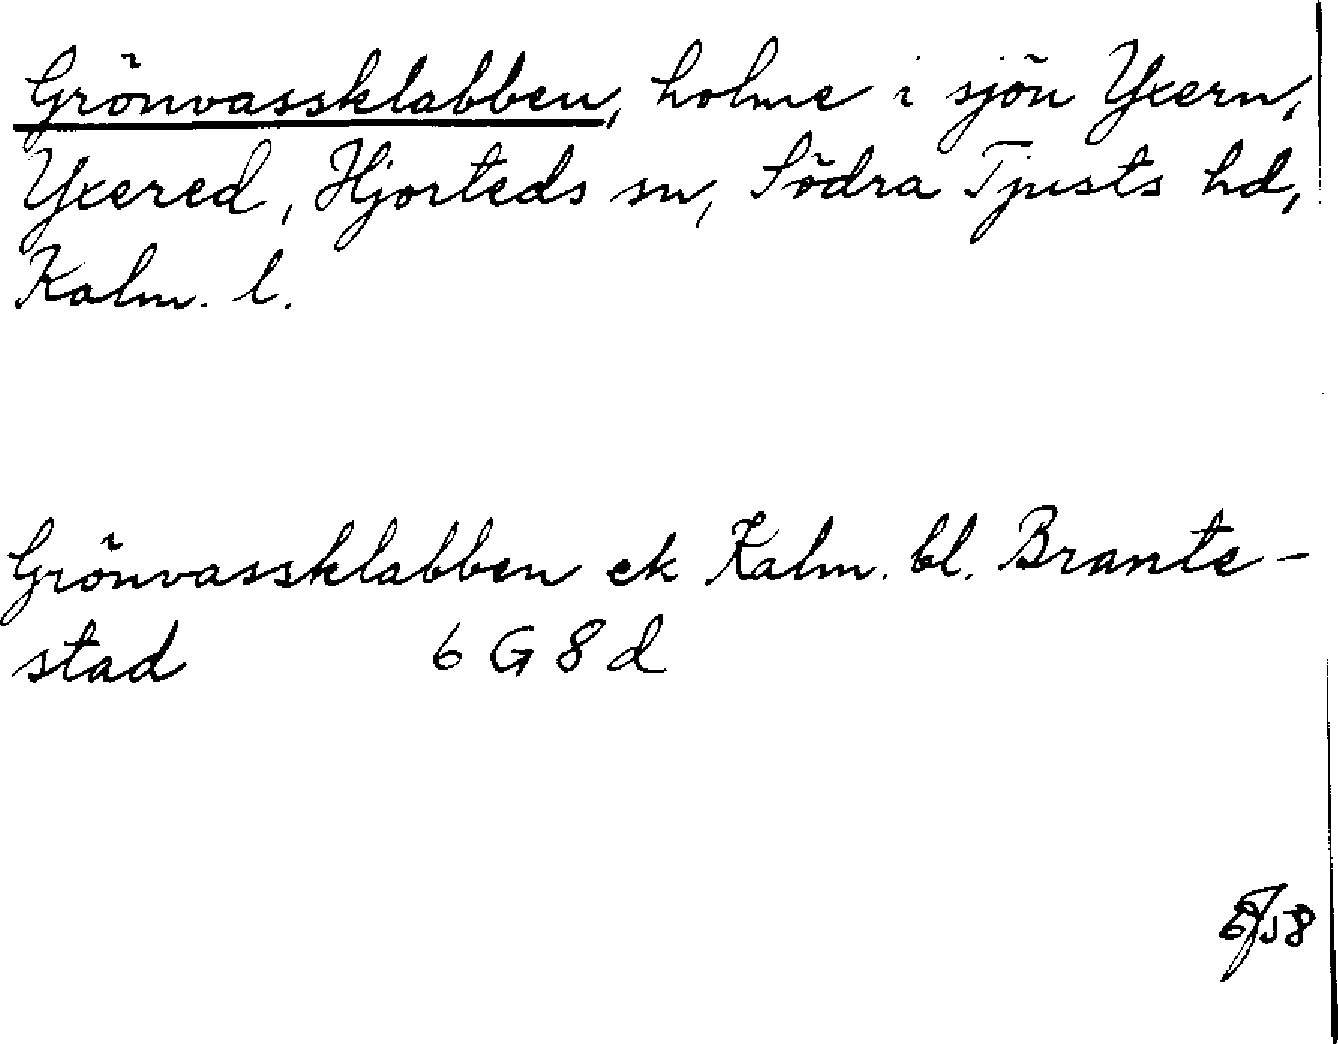 Grönvassklabben, holme i sjön Yxern,
Yxered, Hjorteds sn, Södra Tjusts hd,
Kalm. l.
Grönvassklabben ek Kalm. bl. Brante-
stad 6 G 8 d